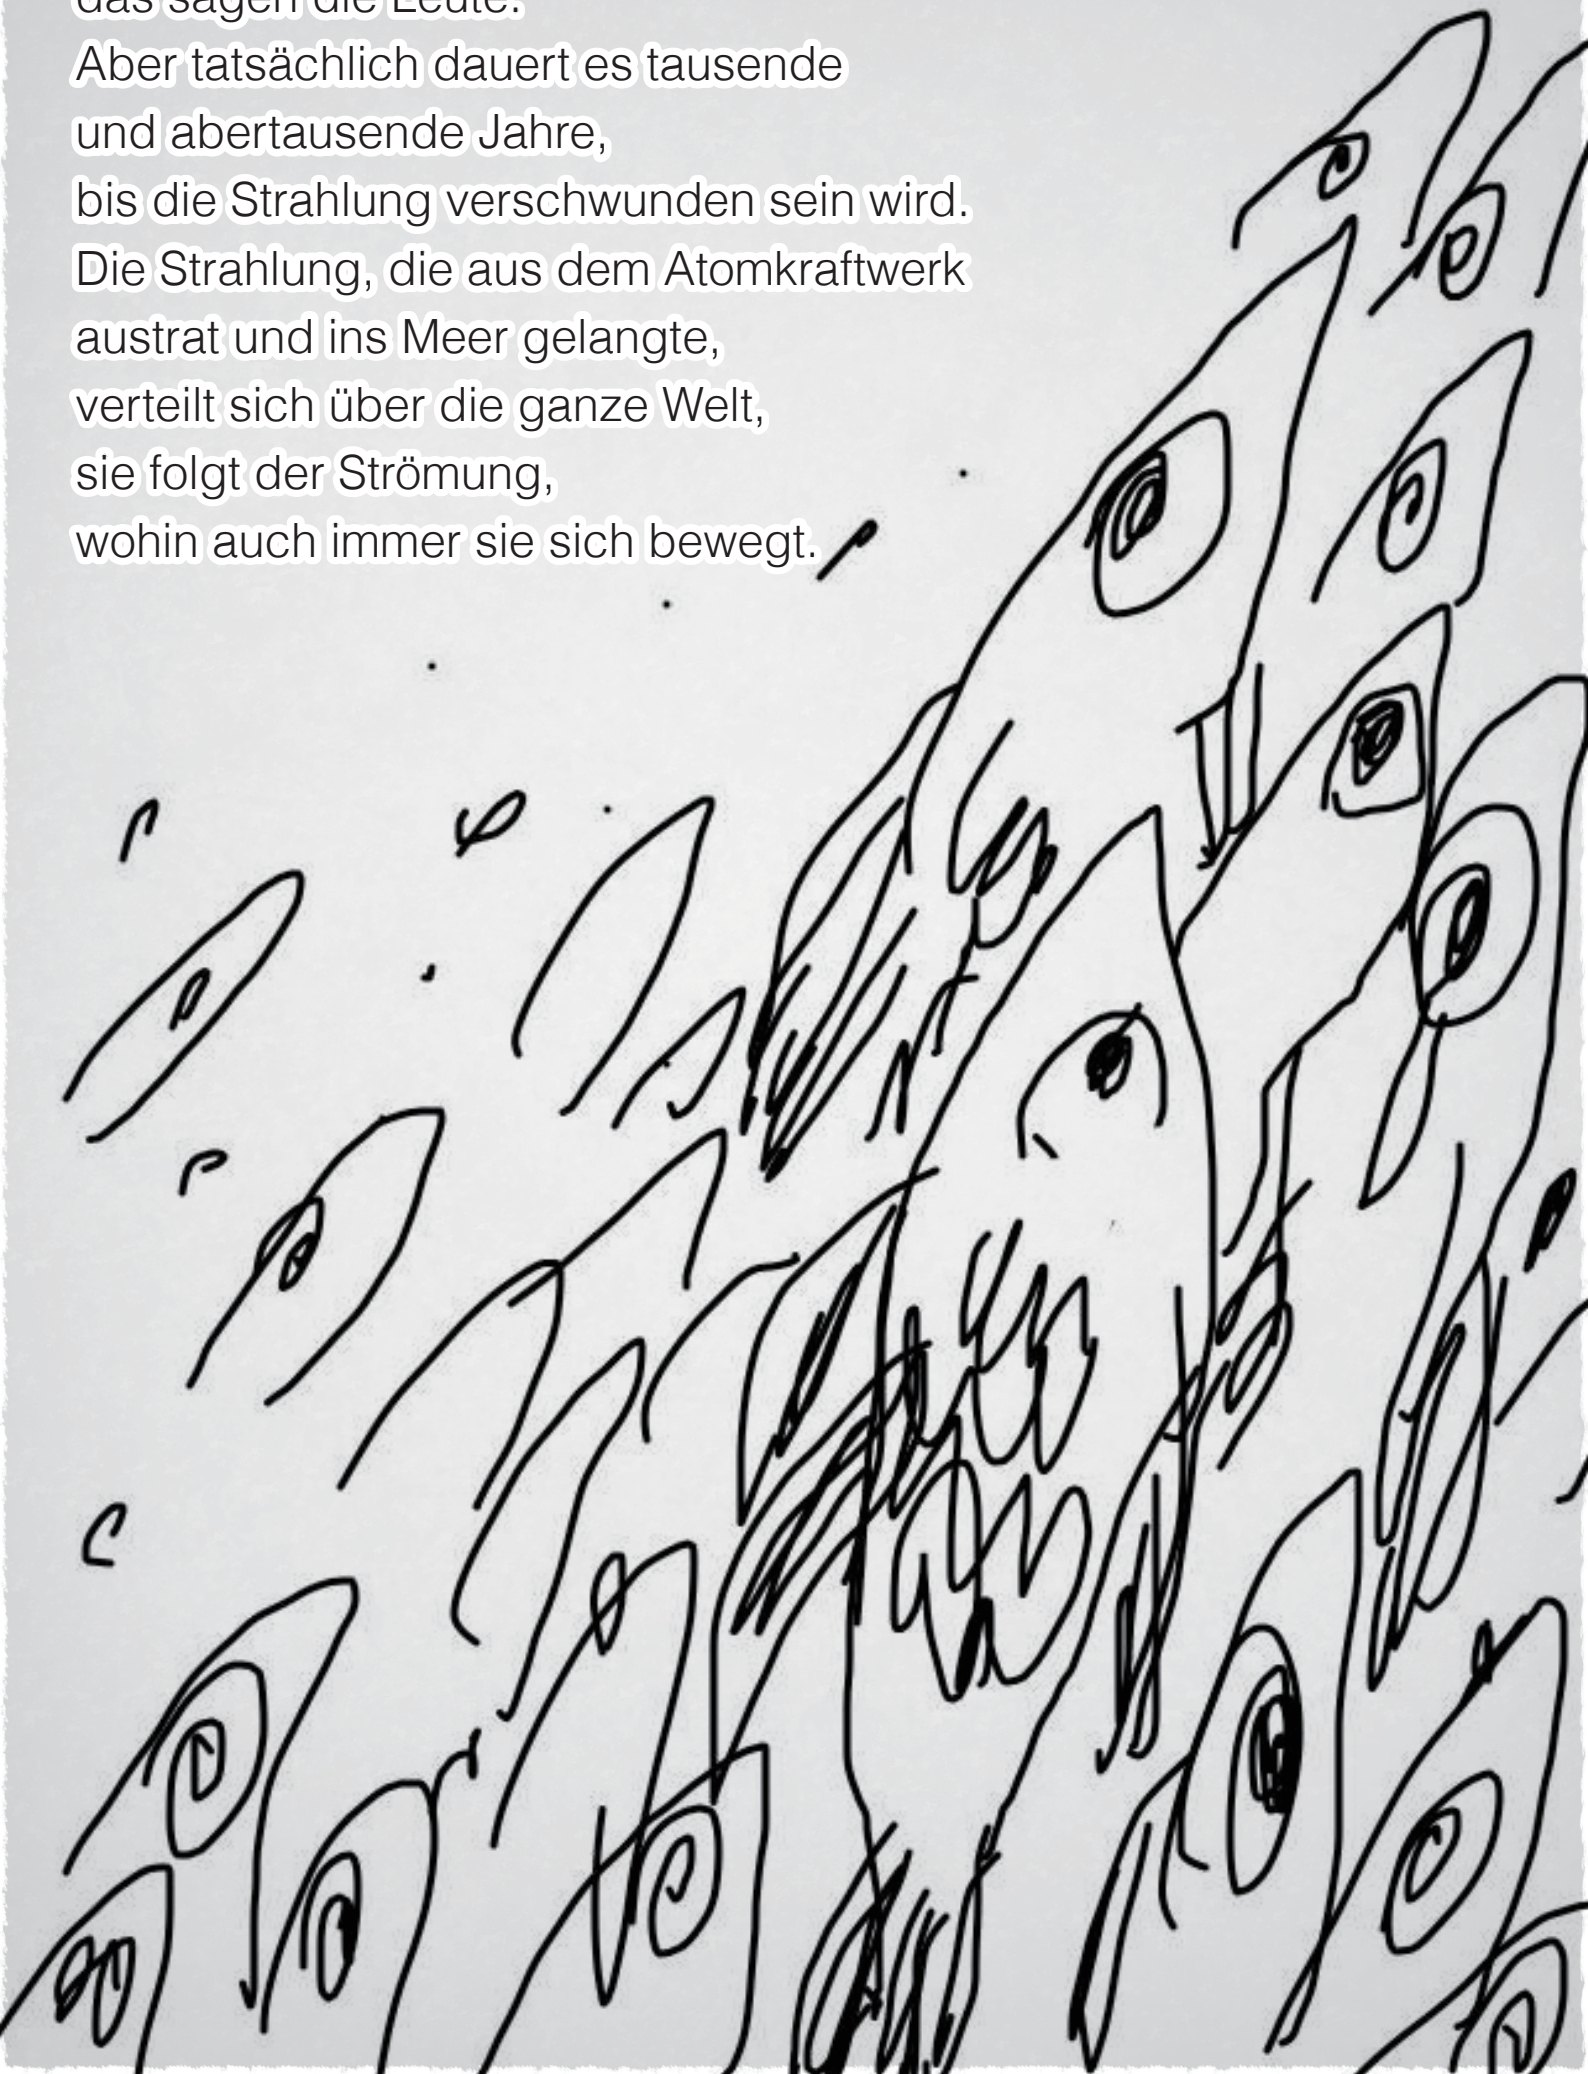 das sagen die Leute.
Aber tatsächlich dauert es tausende
und abertausende Jahre,
bis die Strahlung verschwunden sein wird.
Die Strahlung, die aus dem Atomkraftwerk
austrat und ins Meer gelangte,
verteilt sich über die ganze Welt,
sie folgt der Strömung,
wohin auch immer sie sich bewegt.